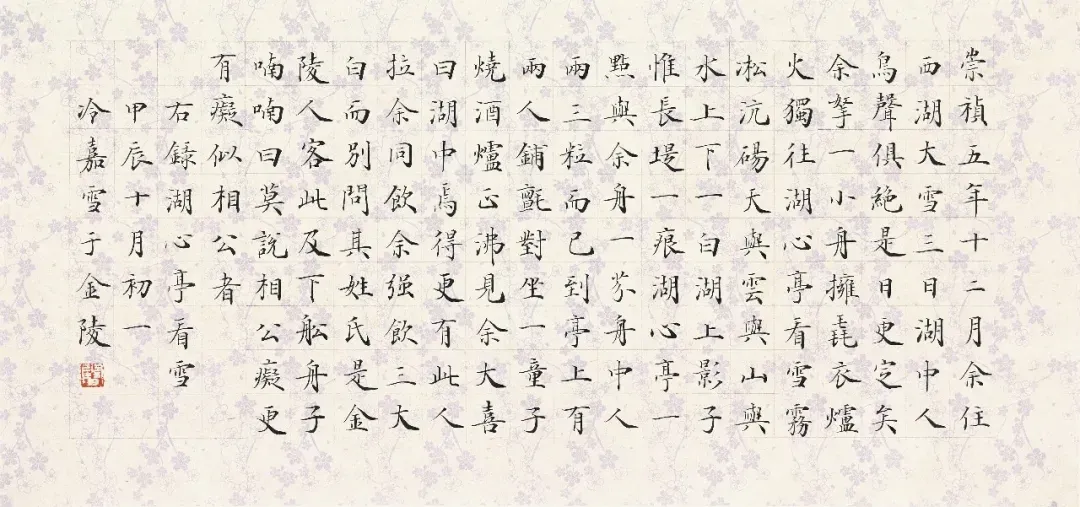 崇禎五年十二月余住
西湖大雪三日湖中人
鳥聲俱絕是日更定矣
余拏一小舟擁毳衣爐
火獨往湖心亭看雪霧
凇沆碭天與雲與山與
水上下一白湖上影子
惟長堤一痕湖心亭一
點與余舟一芥舟中人
兩三粒而已到亭上有
兩人鋪氈對坐一童子
燒酒爐正沸見余大喜
曰湖中焉得更有此人
拉余同飲余强飲三大
白而別問其姓氏是金
陵人客此及下舩舟子
喃喃曰莫說相公癡更
有癡似相公者
右録湖心亭看雪
甲辰十月初一
冷嘉雪于金陵